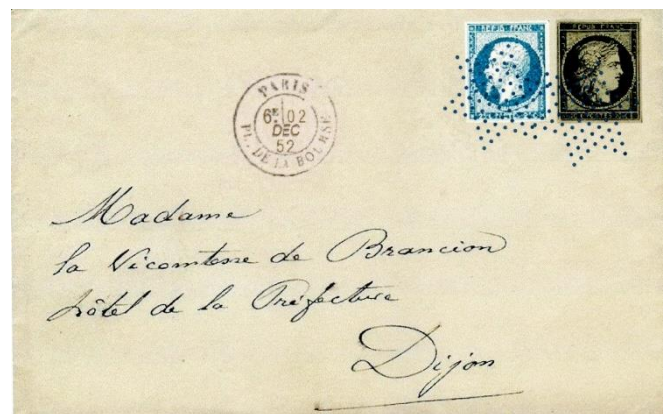 REPUB. FRANC.
REPUB. FRANC.
PARIS
6E 02
DEC
52
PL. DE LA BOURSE
Madame
la Vicomtesse de Brancion
hôtel de la Préfecture
Dijon